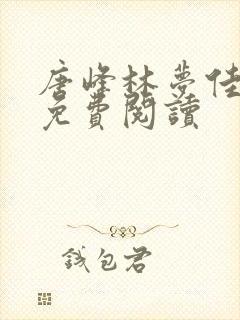 唐峰林夢佳
免費閱讀
錢包君